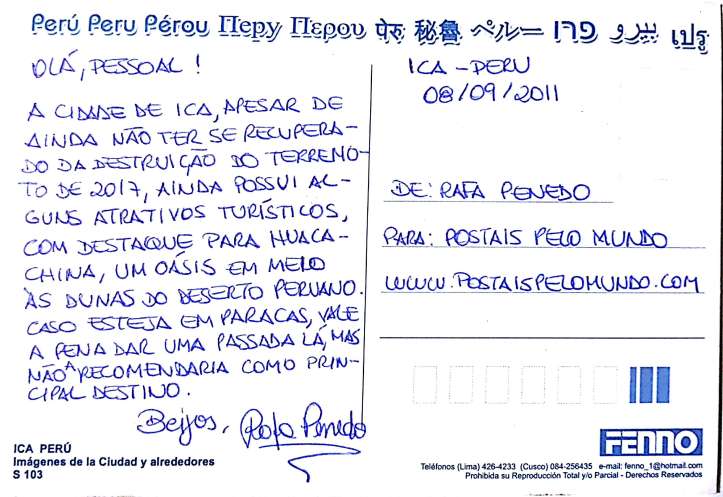 Perú Peru Pérou Перу Περου पेरु 秘魯 ペルー פרו بيرو เปรู
OLÁ, PESSOAL!
A CIDADE DE ICA, APESAR DE
AINDA NÃO TER SE RECUPERA-
DO DA DESTRUIÇÃO DO TERREMO-
TO DE 2017, AINDA POSSUI AL-
GUNS ATRATIVOS TURÍSTICOS,
COM DESTAQUE PARA HUACA-
CHINA, UM OÁSIS EM MEIO
ÀS DUNAS DO DESERTO PERUANO.
CASO ESTEJA EM PARACAS, VALE
A PENA DAR UMA PASSADA LÁ, MAS
NÃO A RECOMENDARIA COMO PRIN-
CIPAL DESTINO.
Beijos, Rafa Penedo
ICA PERÚ
Imágenes de la Ciudad y alrededores
S 103
ICA - PERU
08/09/2011
DE: RAFA PENEDO
PARA: POSTAIS PELO MUNDO
WWW.POSTAISPELOMUNDO.COM
FENNO
Teléfonos (Lima) 426-4233 (Cusco) 084-256435 e-mail: fenno_1@hotmail.com
Prohibida su Reproducción Total y/o Parcial - Derechos Reservados